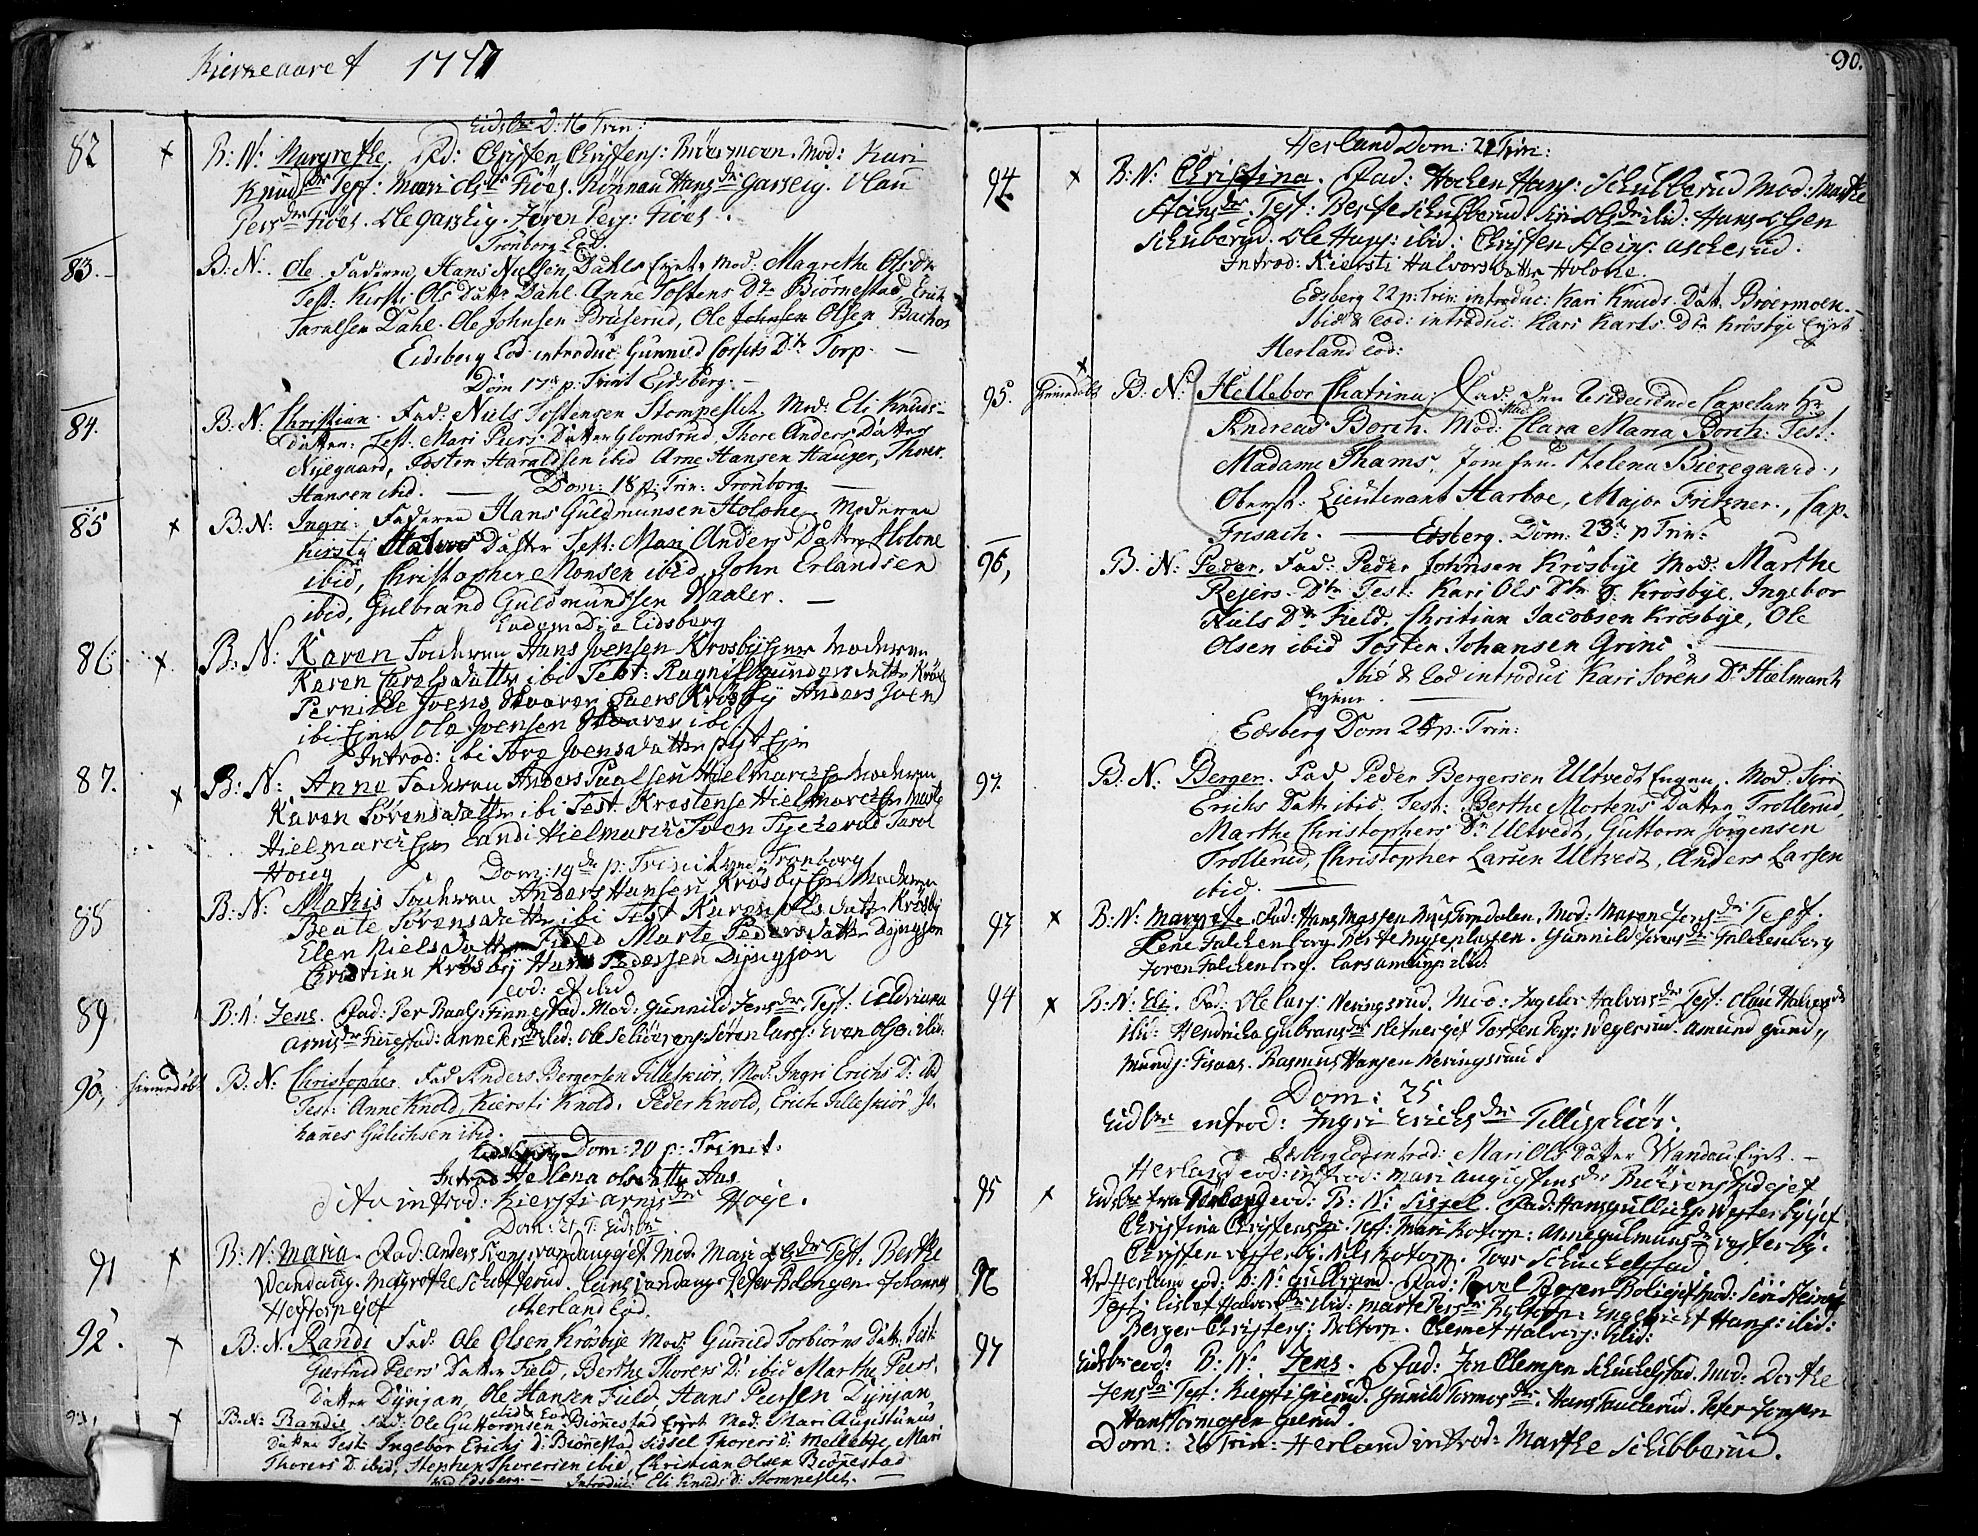 Kierkeaaret 1777
Eidsbr D: 16 Trin:
82 x B: N: Margrethe. Fad: Christen Christens: Bröermoen. Mod: Kari
Knudsdr Test: Mari Olsdr Fiöes. Rönnau Hansdr Garseig. Olau
Persdr Fiöes. Ole Garseig. Joren Pers: Fiöes.
Trönborg Eod.
83. B: N. Ole. Faderen, Hans Nielsen Dahls Eyet, Mod: Magrethe Olsdr
Test: Kirsti Ols Datter Dahl. Anne Tostens Dtr Biörnestad Erich
Taralsen Dahl. Ole Johnsen Präserud, Ole Johnsen Olsen Bachos
Eidsberg Eod introduc: Gunnild Dtr Torp. —
Dom 17de p: Trinit Eidsberg. —
84. B: N: Christian. Fad: Niels Tostensen Stompeslet, Mod: Eli Knuds-
datter: Test: Mari Peers Datter Glomsrud, Thore Anders Datter
Nyegaard, Tosten Haraldsen ibid Arne Hansen Hauger, Thoer
Hansen ibid. — Dom: 18 p: Trin: Trönborg —
85 x B: N: Ingri: Faderen Hans Guldmunsen Holohe, Moderen
kirsty Halvors Datter Test: Mari Anders Datter Holone
ibid, Christopher Monsen ibid, John Erlandsen
ibid, Gulbrand Guldmundsen Waaler. —
Eodemodie Eidsborg
86 x B: N: Karen Faderen Hans Joensen Krosby Ejer Moderen
Karen Taralsdatter ibi Test: Ragnild datter Krös
Pernille Joens Skaaren Peers Krosby Anders Joens
ibi Ejer Ole Joensen Skaaren ibi
Introd: ibi Tore Joensdatter Eje
87. x B: N: Anne Faderen Anders Paalsen Hielmarck Ejer Moderen
Karen Sörensdatter ibi Test Krestense Hielmarck Ejer Marte
Hielmarck Ejer Landi Hielmarck Sven Tycherud Tarol
Hoieg Dom: 19de p: Trinit Trönborg
88 B: N: Mathis Faderen Anders Hansen Krösby Ejer Moderen
Beate Sörensdatter ibi Test Karen Olsdatter Krösby
Elen Nielsdatter Field Marte Pedersdatter Dyngjon
Christian Krösby Hans Pedersen Dyngjon
eod: et ibid
89. B: N: Jens. Fad: Per Paals: Finnestad. Mod: Gunnild Jensdr. Test:
Arnisdr Finnestad: Anne Persdr ibid: Ole Sören Lars: Even Olsen ibid:
90, hiemedöbt B: N: Christopher Fad Anders Bergersen Tilleskiör, Mod: Ingri Erichs D: ibid
Test: Anne Knold, Kiersti Knold, Peder Knold, Erich Tilleskiör Jo-
hanes Gulichsen ibid.
Eidsberg Dom: 20 p: Trinit:
Introd Hellena olsdatter Aas
dito introd: Kiersti Arnisdr Hoje.
Dom: 21 T: Eidsbr
91 x B: N: Maria. Fad: Anders Wandaugejet Mod: Mari Olsdr Test: Berthe
Wandaug. Margrethe Schofterud. Lars Wandaug. Peter Johannes
Hestorpejet Herland Eod.
92. x B: N. Randi Fad: Ole Olsen Krösbye Mod: Gunild Torbiörns Datr. Test:
Giertrud Peers Datter Field, Berthe Thorers D: ibid Marthe Peers
Datter Dynjan, Ole Hansen Field, Hans Peersen Dynjan
ibid & Eod
93, x B: N: Randi Fad: Ole Guttormsen, Biönestad Eyet Mod: Mari Augustinus
datter Test: Ingebor Erichs D: Bionestad Sidsel Thorers D: Mellebye, Mari
Thorers D: ibid, Stephen Thorersen ibid, Christian Olsen Bionestad
Eidsberg — Introduc: Eli Knuds D: Stompeslet. —
90.
Herland Dom: 21 Trin:
94. x B: N: Christina. Fad: Hochen Hans: Schubberud Mod: Marthe
Steinsdr. Test: Berte Schubberud. Siri Olsdr ibid: Hans Olsen
Schuberud. Ole Hans: ibid: Christen Steins: Ascherud.
Introd: Kiersti Halvors datter Holohe.
Edsberg 22 p: Trin: introduc: Kari Knuds Dat: Bröermoen.
Ibid & Eod: introduc: Kari Karls Dtr Krösbye Eyet
Herland eod:
95. x hiemedöbt B: N: Hellebor Chatrina, Fad: Den Resideerende Capelan Hr
Andreas Borch. Mod: Mad: Clara Maria Borch: Test:
Madame Thams, Jomfru Helena Bieregaard,
Oberst: Lieutenant Harboe, Major Fritzner, Cap.
Frisach. — Edsberg. Dom: 23de p Trin:
96, B: N: Peder, Fad: Peder Johnsen Krösbye Mod: Marthe
Rejers Dtr Test: Kari Ols Dtr Krösbye, Ingebor
Niels Dtr Field, Christian Jacobsen Krösbye, Ole
Olsen ibid Tosten Johansen Grini. —
Ibid & Eod introduc Kari Sörens Dr Hielmark
Eyene —
Edsberg Dom 24 p: Trin:
97. B: N: Berger. Fad Peder Bergersen Ultvedt Eyeren. Mod: Siri
Erichs Datr ibid. Test: Berthe Mortens Datter Trollerud,
Marthe Christophers Dr Ultvedt, Guttorm Jörgensen
Trollerud, Christopher Larsen Ultvedt, Anders Larsen
ibid. —
93 x B: N: Margrete. Fad: Hans Torpdalen. Mod: Maren Jensdr Test:
Lene Falchenberg. Berte Myseplassen. Gunnild Jensdr Falchenborg
Joren Falchenberg. Lars ibid.
94 x B: N: Eli. Fad: Ole Lars: Neringsrud. Mod: Ingebor Halversdr Test: Olau Halversdr
ibid: Hendricka Gulbransdr Sletnerejet Tosten Pers: Wegerrud. Amund Gund,,
munds: Fisaas. Rasmus Hansen Neringsrud.
Dom: 25
Eidbr introd: Ingri Erichsdr Tillischiör.
Edsberg Eod introd: Mari Ols Datter Wandau Eyet. —
Herland eod: introd: Mari Augustensdr Biörenstadejet
95 x Eidsbr eod: B: N: Sissel. Fad: Hans Gullichs: Westerbyejet
Christina Christensdr. Test: Mari Kotorp: Anne Gulmunsdr Vesterby.
Christen Vesterby. Nils Kotorp. Iver Schuckelstad.
96 Herland eod: B: N: Gullbrand. Fad: Povel Boliejet Mod: Siri Steinsdr
Test: Lisbet Halversdr ibid: Marte Persdr Boltorp. Engebrecht Hans: ibid:
Berger Christens: Boltorp. Clemet Halvors: ibid:
97 Eidsbr eod: B: N: Jens. Fad: Jen Clemsen Schuckelstad. Mod: Dorthe
Jensdr Test: Kiersti Gierud. Gunild Tormosdr. Hans Fauckerud. Peter Jonsen
Hans Tormosen Gierud.
Dom: 26 Trin: Herland introd: Marthe Schubberud.